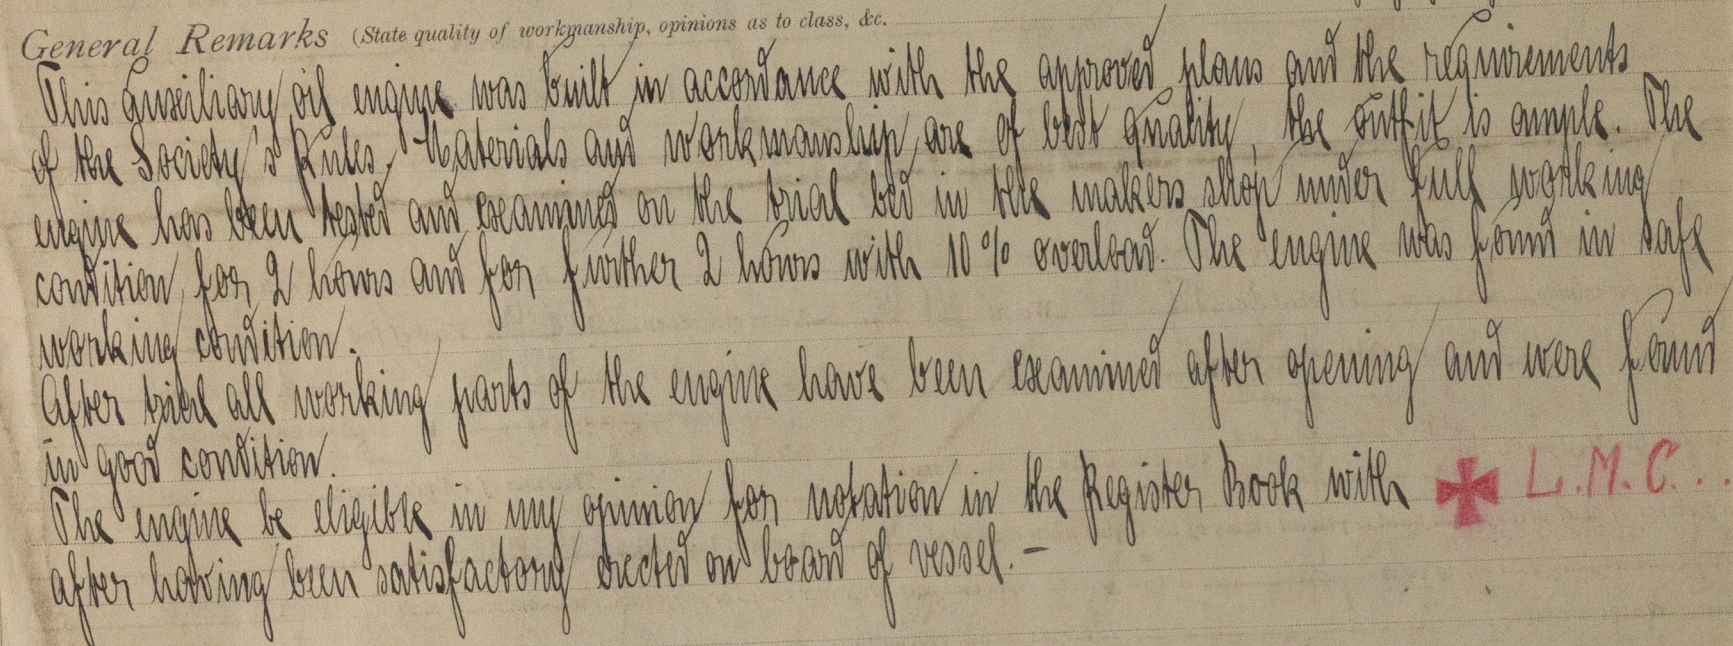 General Remarks (State quality of workmanship, opinions as to class, &c.
This auxiliary oil engine was built in accordance with the approved plans and the requirements
of the Society's Rules. Materials and workmanship are of best quality, the outfit is ample. The
engine has been tested and examined on the trial bed in the makers shop under full working
condition for 2 hours and for further 2 hours with 10% overload. The engine was found in safe
working condition.
After trial all working parts of the engine have been examined after opening and were found
in good condition.
The engine be eligible in my opinion for notation in the Register Book with ✠ L.M.C...
after having been satisfactory erected on board of vessel. —